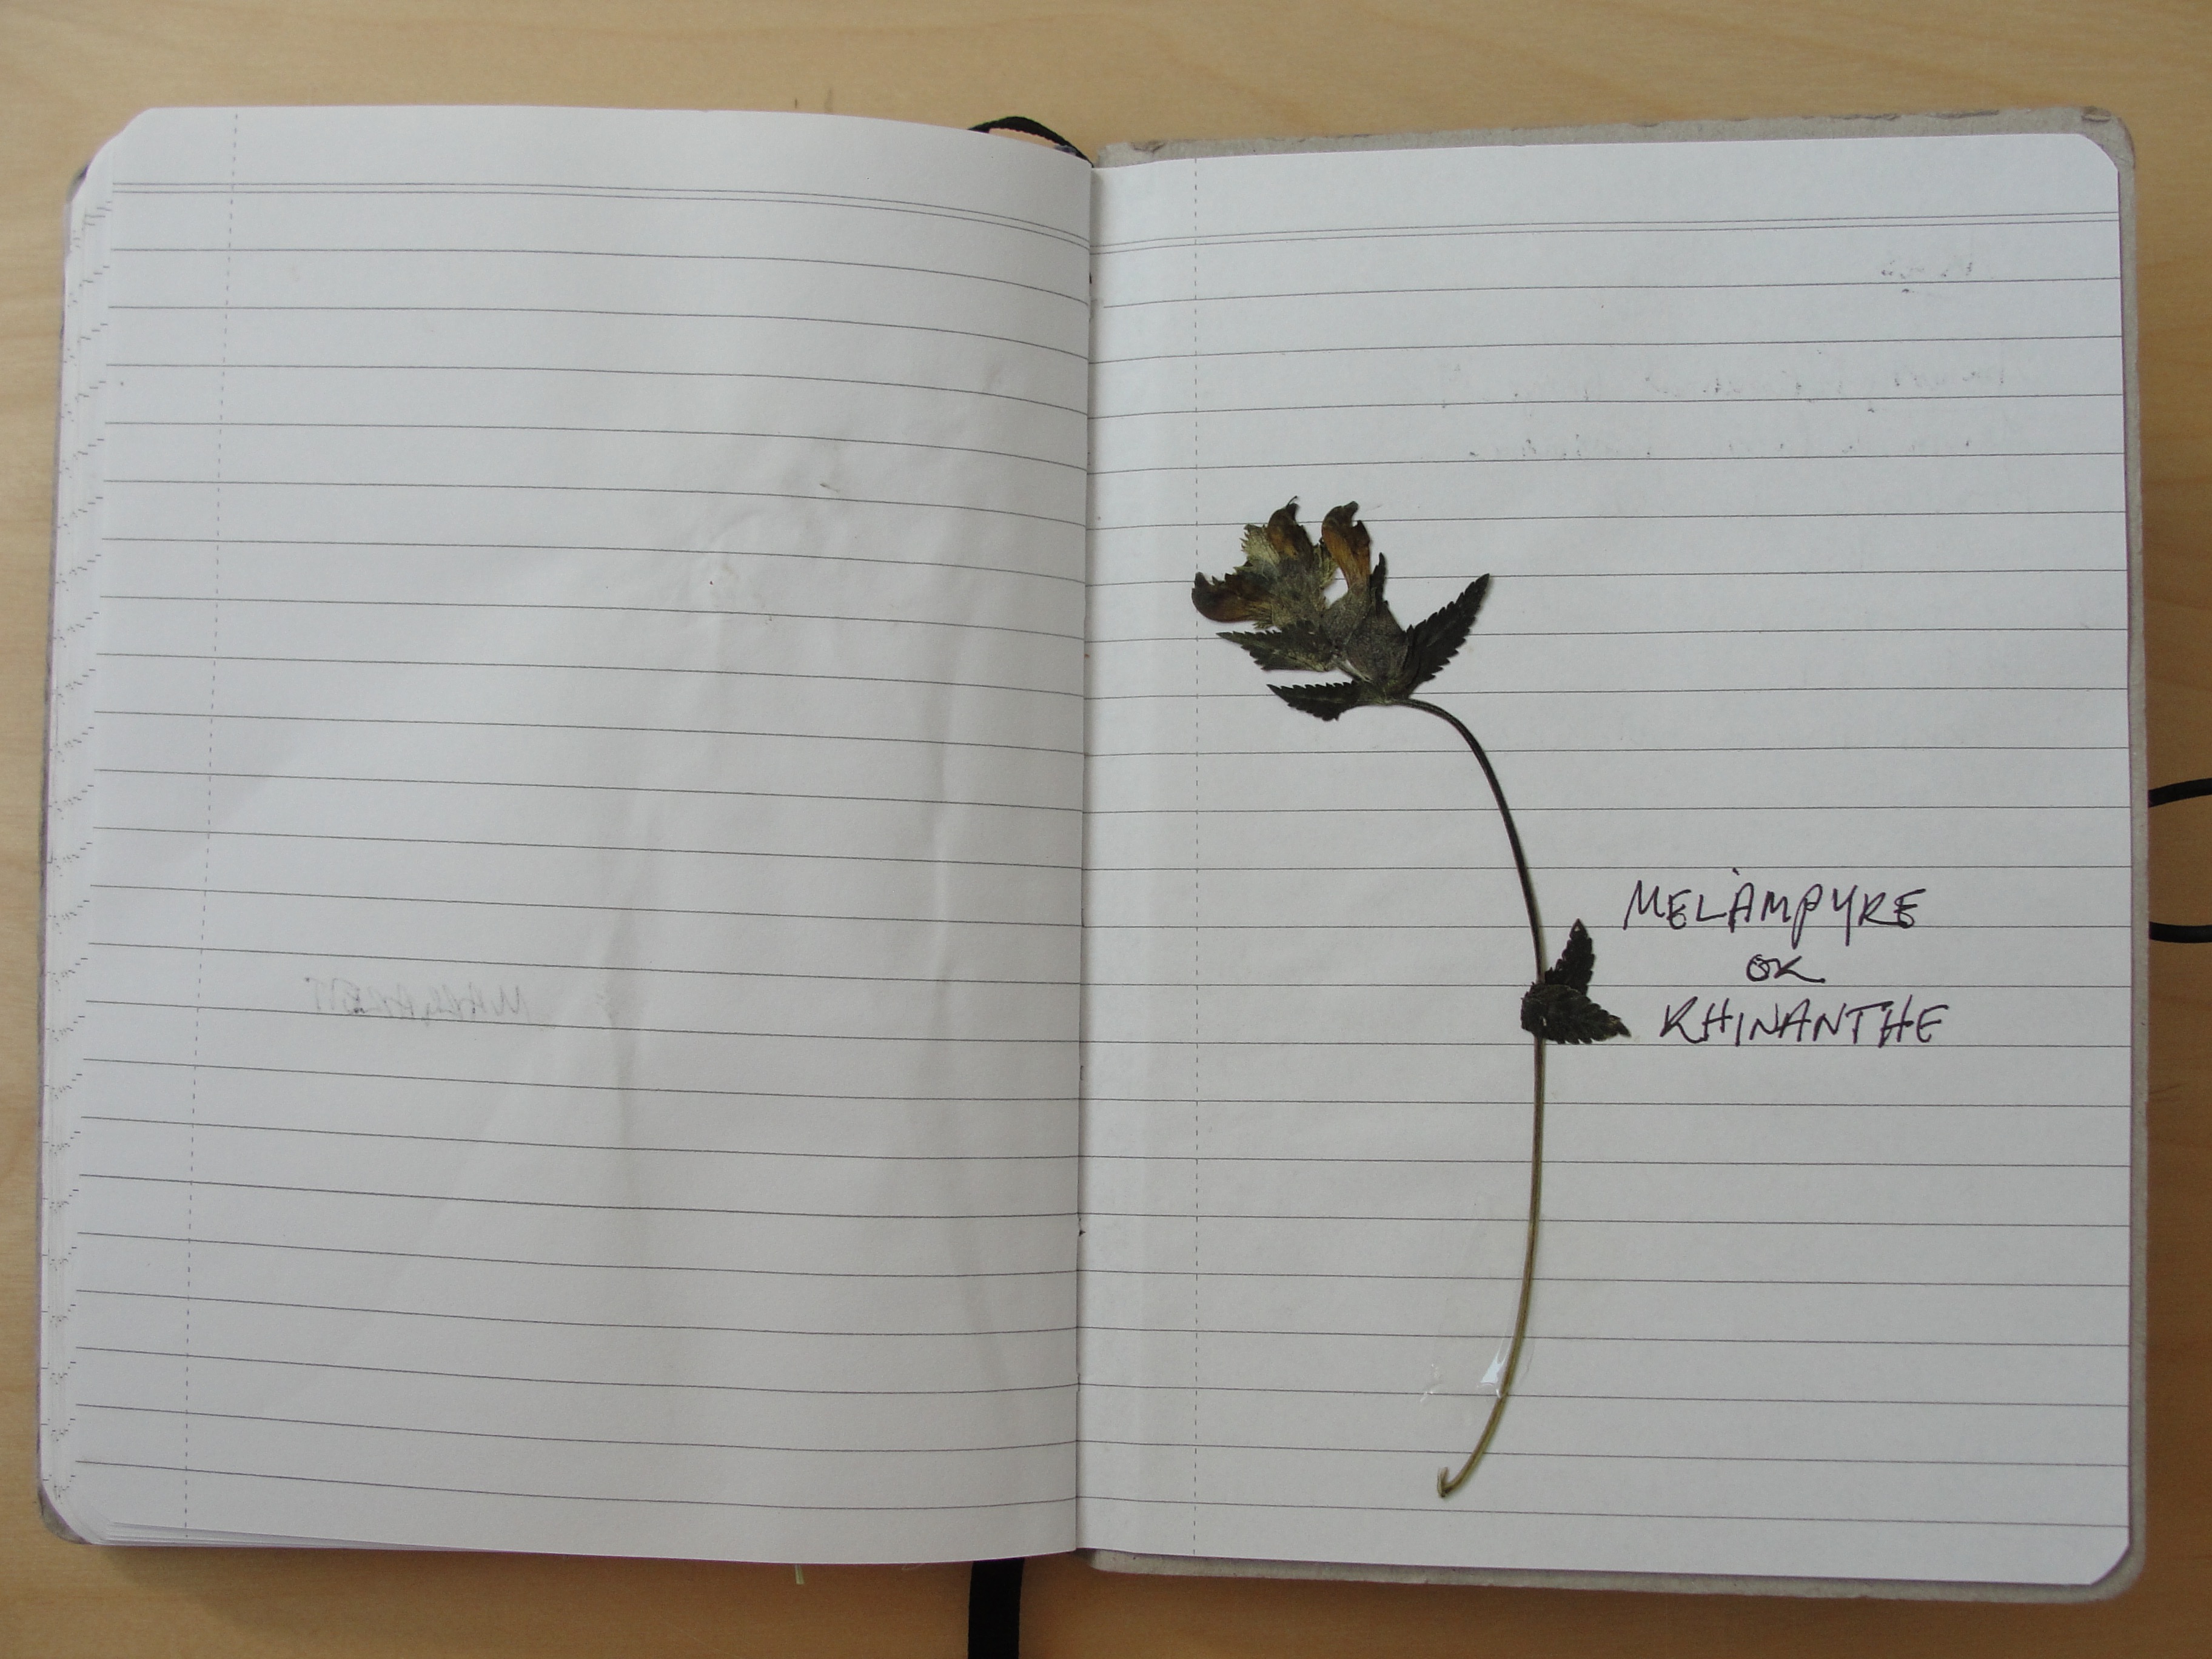 MELÀMPYRE
OR
RHINANTHE